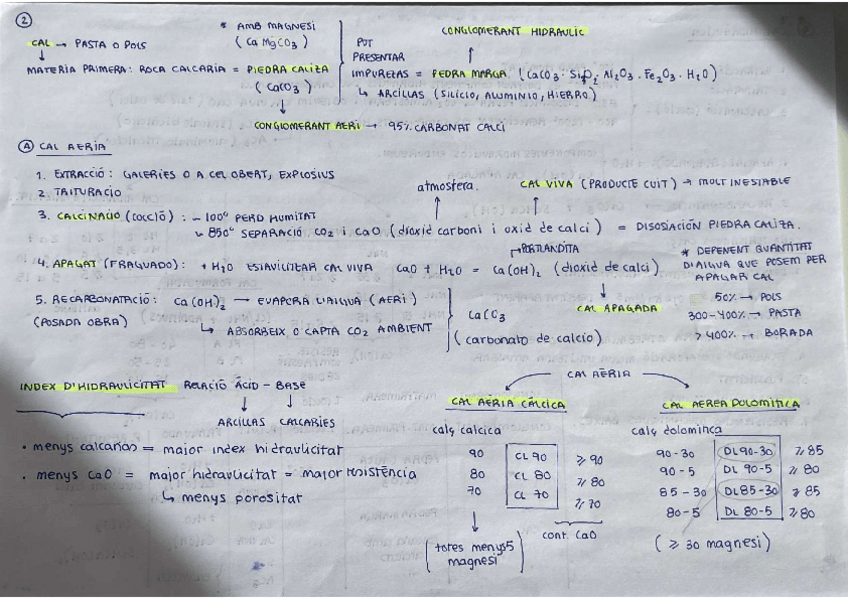 2
* AMB MAGNESI
(Ca MgCO3)
CAL → PASTA O POLS
MATERIA PRIMERA: ROCA CALCARIA = PIEDRA CALIZA
(CaCO3)
POT
PRESENTAR
IMPUREZAS = PEDRA MARGA (CaCO3 · SiO2 Al2O3 · Fe2O3 · H2O)
↳ ARCILLAS (SILICIO, ALUMINIO, HIERRO)
CONGLOMERANT HIDRAULIC
CONGLOMERANT AERI → 95% CARBONAT CALCI
A CAL AERIA
1. EXTRACCIÓ: GALERIES O A CEL OBERT, EXPLOSIUS
2. TRITURACIO
atmosfera.
CAL VIVA (PRODUCTE CUIT) → MOLT INESTABLE
3. CALCINACIO (COCCIÓ): - 100° PERD HUMITAT
↳ 850° SEPARACIÓ CO2 i CaO (dioxid carboni i oxid de calci) = DISOSIACIÓN PIEDRA CALIZA.
PORTLANDITA
4. APAGAT (FRAGUADO): + H2O ESTAVILITZAR CAL VIVA CaO + H2O = Ca(OH)2 (dioxid de calci)
CAL APAGADA
* DEPENENT QUANTITAT
D'AIGUA QUE POSEM PER
APAGAR CAL
50% → POLS
300-400% → PASTA
> 400% → BORADA
5. RECARBONATACIÓ: Ca(OH)2 → EVAPORA L'AIGUA (AERI)
(POSADA OBRA)
↳ ABSORBEIX O CAPTA CO2 AMBIENT
CaCO3
(carbonato de calcio)
INDEX D'HIDRAULICITAT RELACIÓ ÀCID - BASE
ARCILLAS CALCARIES
· menys calcarias = maior index hidraulicitat
· menys CaO = major hidraulicitat = maior resistència
↳ menys porositat
CAL AÈRIA
CAL AÈRIA CÀLCICA
calç calcica
90 CL 90 ≥ 90
80 CL 80 ≥ 80
70 CL 70 ≥ 70
cont. CaO
(totes menys 5
magnesi)
CAL AEREA DOLOMITICA
calç dolomitica
90-30 DL 90-30 ≥ 85
90-5 DL 90-5 ≥ 80
85-30 DL 85-30 ≥ 85
80-5 DL 80-5 ≥ 80
(≥ 30 magnesi)